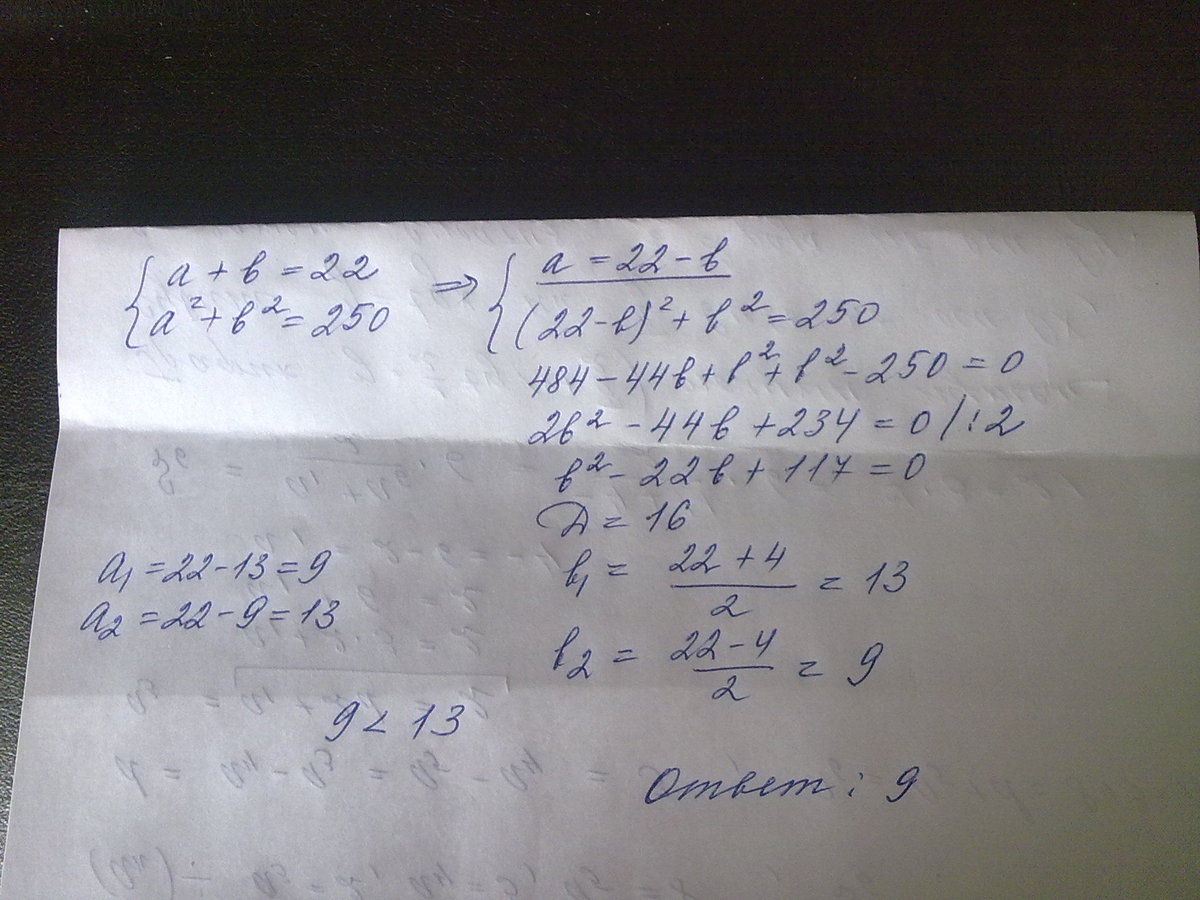 { a + b = 22 => { a = 22 - b
a² + b² = 250 (22-b)² + b² = 250
484 - 44b + b² + b² - 250 = 0
2b² - 44b + 234 = 0 /:2
b² - 22b + 117 = 0
D = 16
a₁ = 22-13 = 9
a₂ = 22-9 = 13
b₁ = (22+4)/2 = 13
b₂ = (22-4)/2 = 9
9 < 13
Ответ: 9